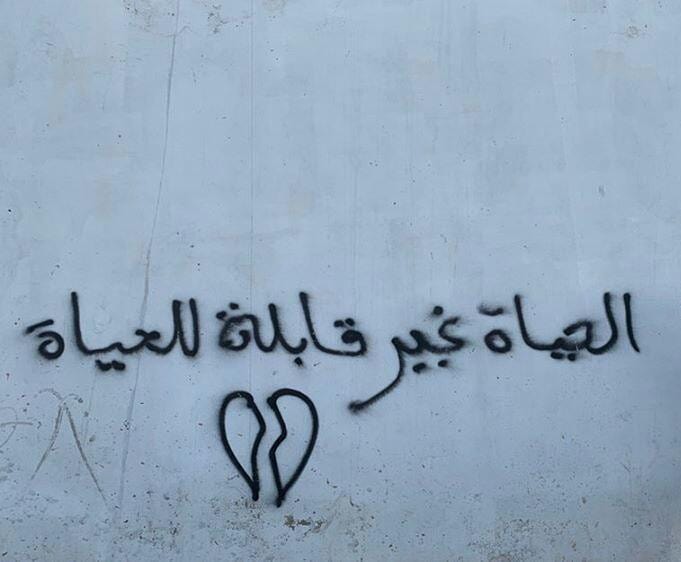 الحياة غير قابلة للحياة